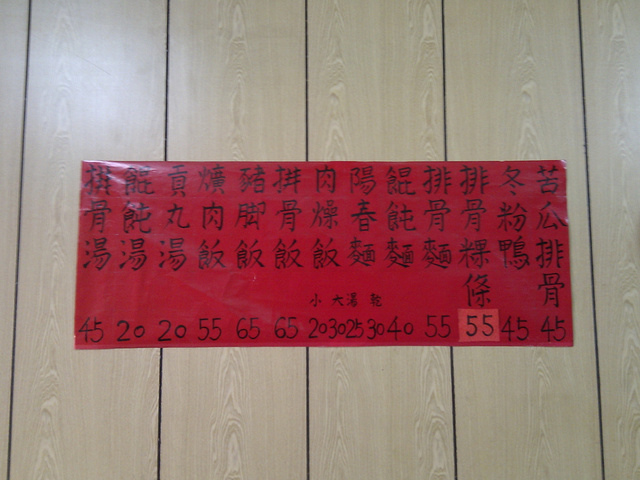 苦瓜排骨 45
冬粉鴨 45
排骨粿條 55
排骨麵 55
餛飩麵 40
陽春麵 湯 乾 25 30
肉燥飯 小 大 20 30
排骨飯 65
豬脚飯 65
爌肉飯 55
貢丸湯 20
餛飩湯 20
排骨湯 45